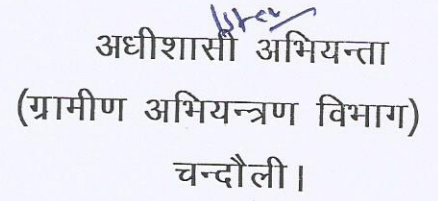 अधीशासी अभियन्ता
(ग्रामीण अभियन्त्रण विभाग)
चन्दौली।